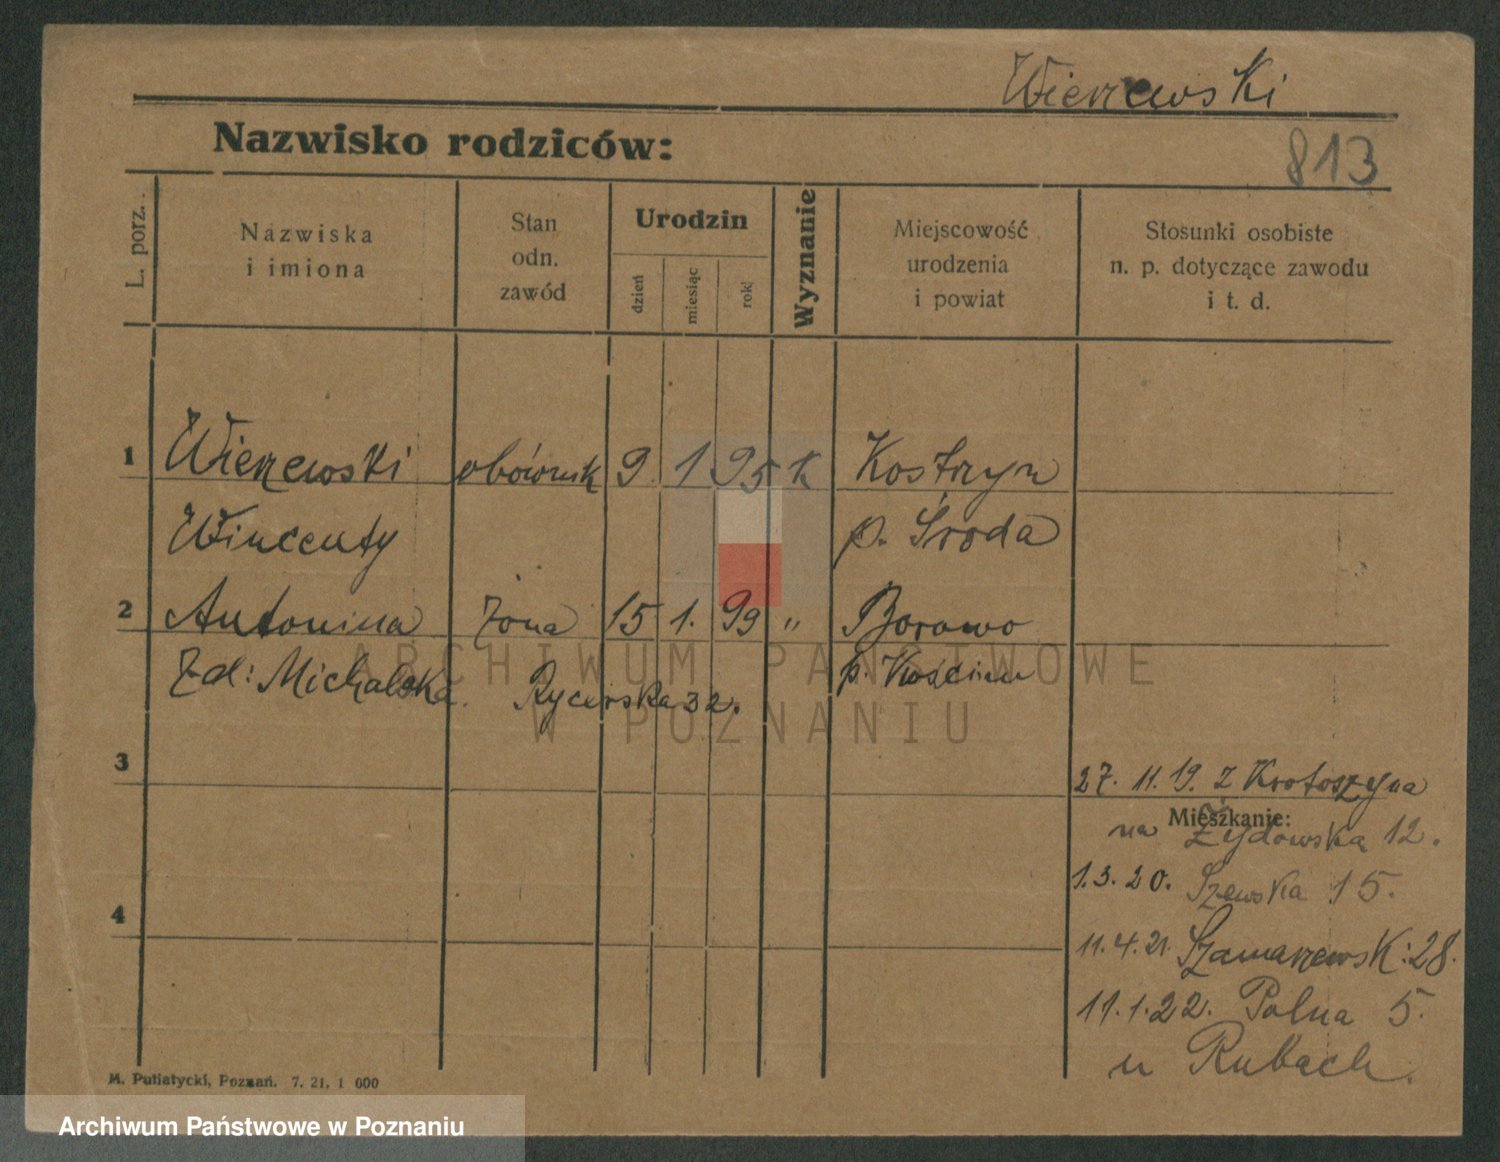 Wierzewski
Nazwisko rodziców:
813
L. porz.
Nazwiska
i imiona
Stan
odn.
zawód
Urodzin
dzień
miesiąc
rok
Wyznanie
Miejscowość
urodzenia
i powiat
Stosunki osobiste
n. p. dotyczące zawodu
i t. d.
1 Wierzewski obównik 9. 1. 95 k Kostrzyn
Wincenty p. Środa
2 Antonina żona 15 1. 99 " Borowo
Zd: Michalska. Rycerska 32. p. Kościan
3
27. 11. 19. z Krotoszyna
Mieszkanie:
na Żydowską 12.
1.3.20. Szewska 15.
4
11.4.21. Szamarzewsk: 28.
11.1.22. Polna 5.
u Rubach.
M. Putiatycki, Poznań. 7. 21. 1 000
ARCHIWUM PAŃSTWOWE
W POZNANIU
Archiwum Państwowe w Poznaniu